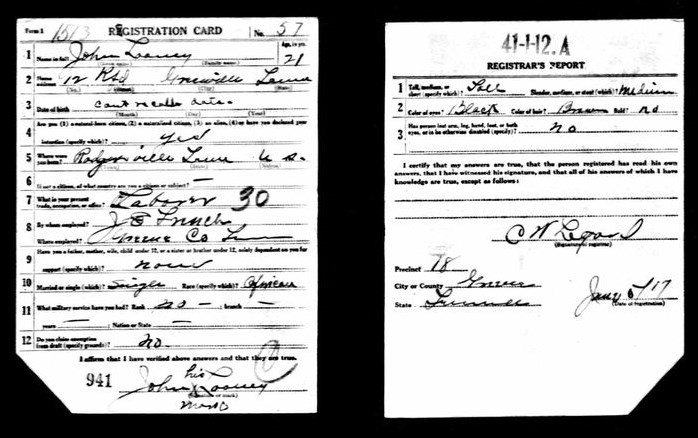 Form 1 1513 REGISTRATION CARD No. 57
1 Name in full John Looney Age, in yrs. 21
(Given name) (Family name)
2 Home address 12 Rfd Greeneville Tenn
(No.) (Street) (City) (State)
3 Date of birth cant recall date
(Month) (Day) (Year)
Are you (1) a natural-born citizen, (2) a naturalized citizen, (3) an alien, (4) or have you declared your
4 intention (specify which)? yes
5 Where were you born? Rodgersville Tenn U S.
(Town) (State) (Nation)
6 If not a citizen, of what country are you a citizen or subject? —
7 What is your present trade, occupation, or office? Laborer 30
8 By whom employed? J E French
Where employed? Greene Co Tenn
9 Have you a father, mother, wife, child under 12, or a sister or brother under 12, solely dependent on you for
support (specify which)? none
10 Married or single (which)? Single Race (specify which)? African
11 What military service have you had? Rank no — ; branch —
years — ; Nation or State —
12 Do you claim exemption from draft (specify grounds)? no.
I affirm that I have verified above answers and that they are true.
941
his
John X Looney
(Signature or mark)
mark
41-1-12. A
REGISTRAR'S REPORT
1 Tall, medium, or short (specify which)? Tall Slender, medium, or stout (which)? Medium
2 Color of eyes? Black Color of hair? Brown Bald? no
3 Has person lost arm, leg, hand, foot, or both eyes, or is he otherwise disabled (specify)? no
I certify that my answers are true, that the person registered has read his own
answers, that I have witnessed his signature, and that all of his answers of which I have
knowledge are true, except as follows:
C W
(Signature of registrar)
Precinct 18
City or County Greene
State Tennessee
June 5/17
(Date of registration)